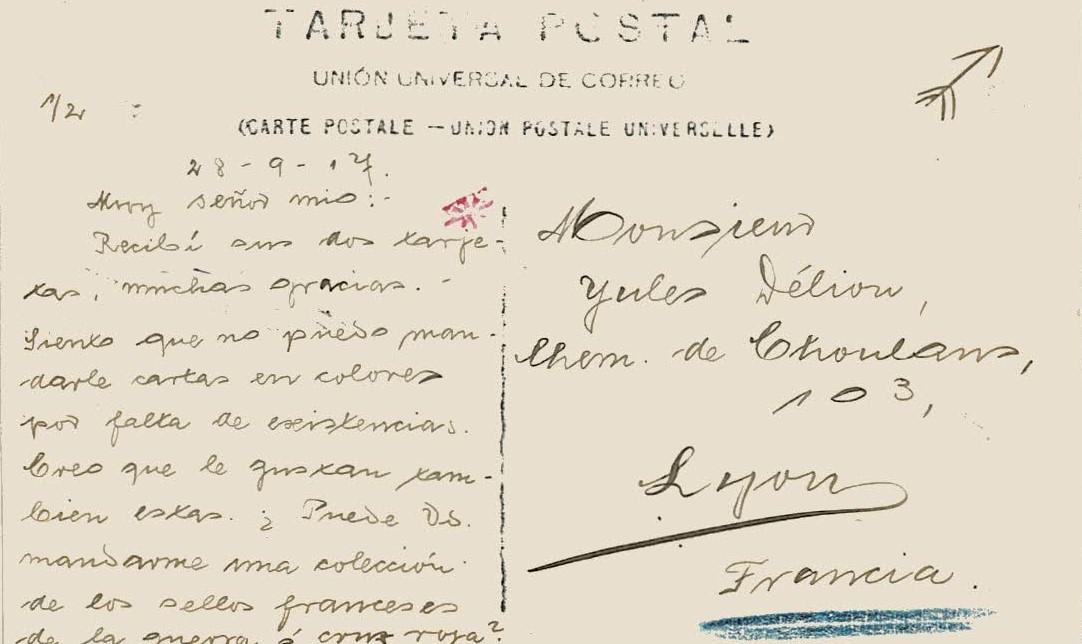 TARJETA POSTAL
UNIÓN UNIVERSAL DE CORREO
(CARTE POSTALE — UNION POSTALE UNIVERSELLE)
1/2
28-9-17.
Muy señor mio:-
Recibí sus dos tarje-
tas, muchas gracias. -
Siento que no puedo man-
darle cartas en colores
por falta de existencias.
Creo que le gustan tam-
bien estas. ¿Puede Vd.
mandarme una colección
de los sellos franceses
de la guerra ó cruz roja?
Monsieur
Yules Délion,
Chem. de Choulans,
103,
Lyon
Francia.